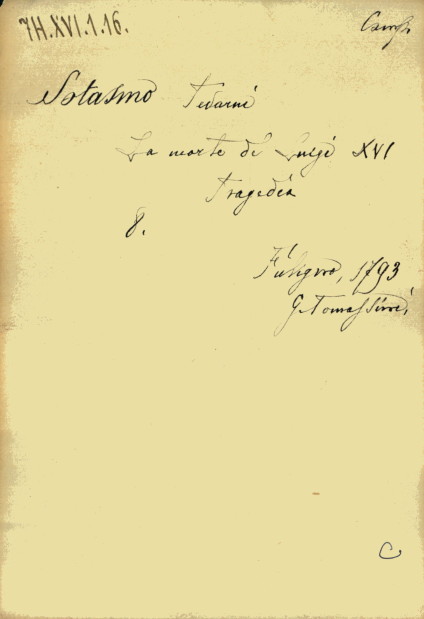 7H.XVI.1.16.
Notasmo Tedarni
La morte di Luigi XVI
Tragedia
8.
Fuligno, 1793
G. Tomassini,
C